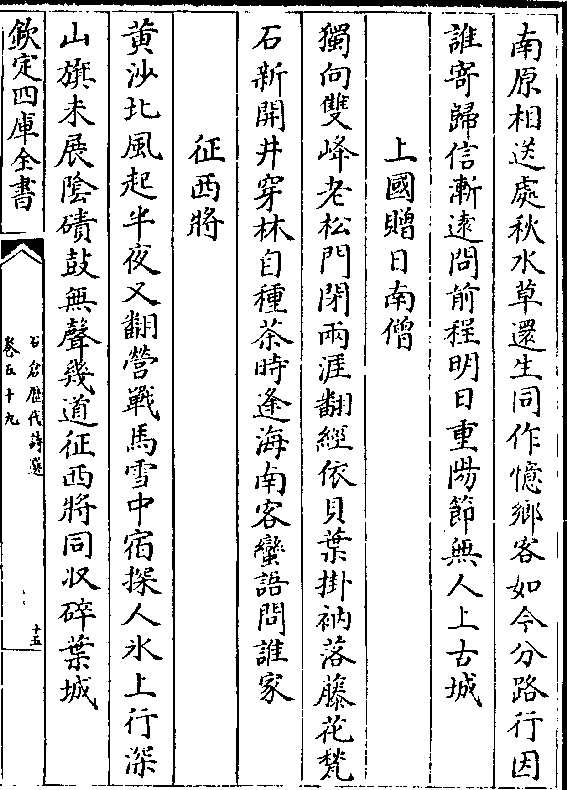 南原相送處秋水草還生同作憶鄉客如今分路行因
誰寄歸信漸遠問前程明日重陽節無人上古城
上國贈日南僧
獨向雙峰老松門閉兩涯翻經依貝葉掛衲落藤花甃
石新開井穿林自種茶時逢海南客蠻語問誰家
征西將
黄沙北風起半夜又翻營戰馬雪中宿探人氷上行深
山旗未展陰磧鼓無聲幾道征西將同收碎葉城
欽定四庫全書
石倉歷代詩選
卷五十九
十五